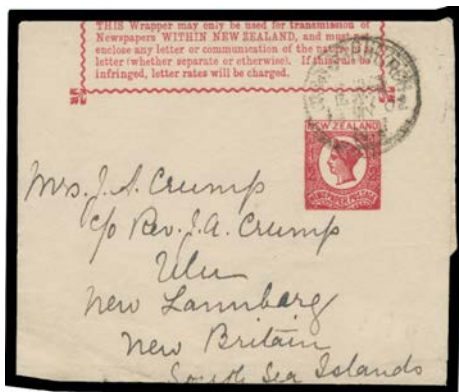 THIS Wrapper may only be used for transmission of
Newspapers WITHIN NEW ZEALAND, and must
enclose any letter or communication of the nature
letter (whether separate or otherwise). If this
infringed, letter rates will be charged.
NEW ZEALAND
Mrs. J. A. Crump
c/o Rev. J. A. Crump
Ulu
New Lannbarg
New Britain
South Sea Islands